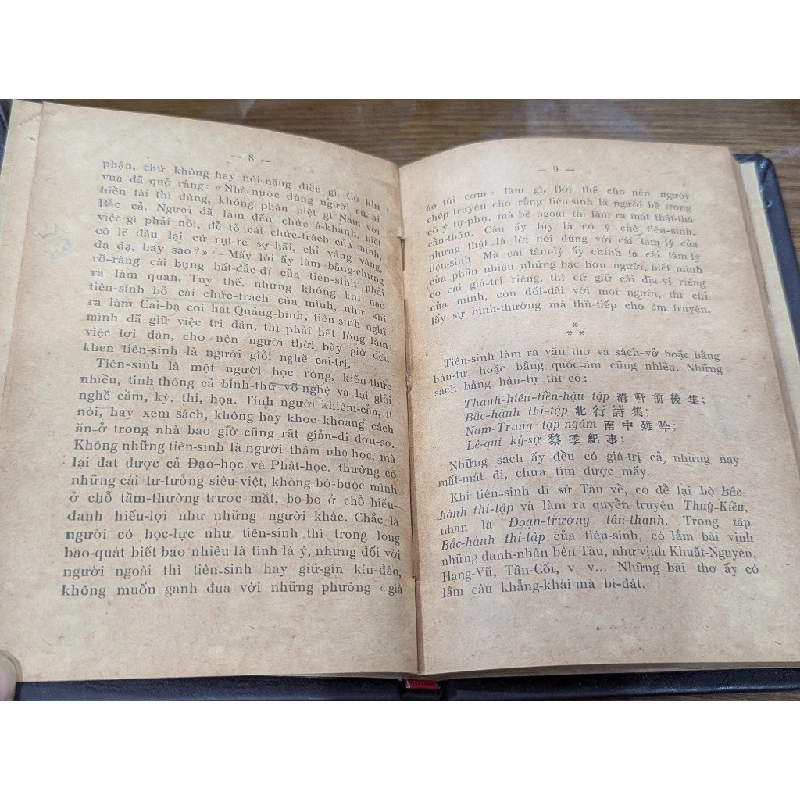 — 8 —
phận, chứ không hay nói-năng điều gì. Có khi
vua đã quở rằng: « Nhà-nước dùng người, cứ ai
hiền tài thì dùng, không phân biệt gì Nam với
Bắc cả. Ngươi đã làm đến chức á-khanh, biết
việc gì phải nói, để tỏ cái chức-trách của mình,
có lẽ đâu lại cứ rụt-rè sợ-hãi, chỉ vâng vâng,
dạ dạ, hay sao? » — Mấy lời ấy làm bằng-chứng
rõ-ràng cái bụng bất-đắc-dĩ của tiên-sinh phải
ra làm quan. Tuy thế, nhưng không khi nào
tiên-sinh bỏ cái chức-trách của mình, như khi
ra làm Cai-bạ coi hạt Quảng-bình, tiên-sinh nghĩ
mình đã giữ việc trị dân, thì phải hết lòng làm
việc lợi dân, cho nên người thời bấy giờ đều
khen tiên-sinh là người giỏi nghề cai-trị.
Tiên-sinh là một người học rộng, kiến-thức
nhiều, tinh thông cả binh-thư võ nghệ và lại giỏi
nghề cầm, kỳ, thi, họa. Tính người khiêm-cẩn, ít
nói, hay xem sách, không hay khoe-khoang cách
ăn-ở trong nhà bao giờ cũng rất giản-dị đơn-sơ.
Không những tiên-sinh là người thâm nho học, mà
lại đạt được cả Đạo-học và Phật-học, thường có
những cái tư-tưởng siêu-việt, không bó-buộc mình
ở chỗ tầm-thường trước mắt, bo-bo ở chỗ hiếu-
danh hiếu-lợi như những người khác. Chắc là
người có học-lực như tiên-sinh thì trong lòng
bao-quát biết bao nhiêu là tình là ý, nhưng đối với
người ngoài thì tiên-sinh hay giữ-gìn kín-đáo,
không muốn ganh đua với những phường « giá
— 9 —
áo túi cơm » làm gì. Bởi thế cho nên người
chép truyện cho rằng tiên-sinh là người bề trong
có ý tự-phụ, mà bề ngoài thì làm ra mặt thật-thà
cẩn-thận. Câu ấy tuy là có ý chê tiên-sinh,
nhưng thật là lời nói đúng với cái tâm-lý của
tiên-sinh. Mà cái tâm-lý ấy chính là cái tâm-lý
của phần nhiều những bậc hơn người, biết mình
có cái giá-trị riêng, thì cứ giữ cái địa-vị riêng
của mình, còn đối-đãi với mọi người, thì chỉ
lấy sự bình-thường mà thù-tiếp cho êm truyện.
* * *
Tiên-sinh làm ra văn thơ và sách-vở hoặc bằng
hán-tự, hoặc bằng quốc-âm cũng nhiều. Những
sách bằng hán-tự thì có:
Thanh-hiên-tiền-hậu tập 清軒前後集;
Bắc-hành thi-tập 北行詩集;
Nam-Trung tạp ngâm 南中雜吟;
Lê-quí kỷ-sự 黎季紀事;
Những sách ấy đều có giá-trị cả, nhưng nay
mất-mát đi, chưa tìm được mấy.
Khi tiên-sinh đi sứ Tàu về, có để lại bộ Bắc-
hành thi-tập và làm ra quyển truyện Thuý-Kiều,
nhan là Đoạn-trường tân-thanh. Trong tập
Bắc-hành thi-tập của tiên-sinh, có lắm bài vịnh
những danh-nhân bên Tàu, như vịnh Khuất-Nguyên,
Hạng-Vũ, Tần-Cối, v. v... Những bài thơ ấy có
lắm câu khẳng-khái mà bi-đát.